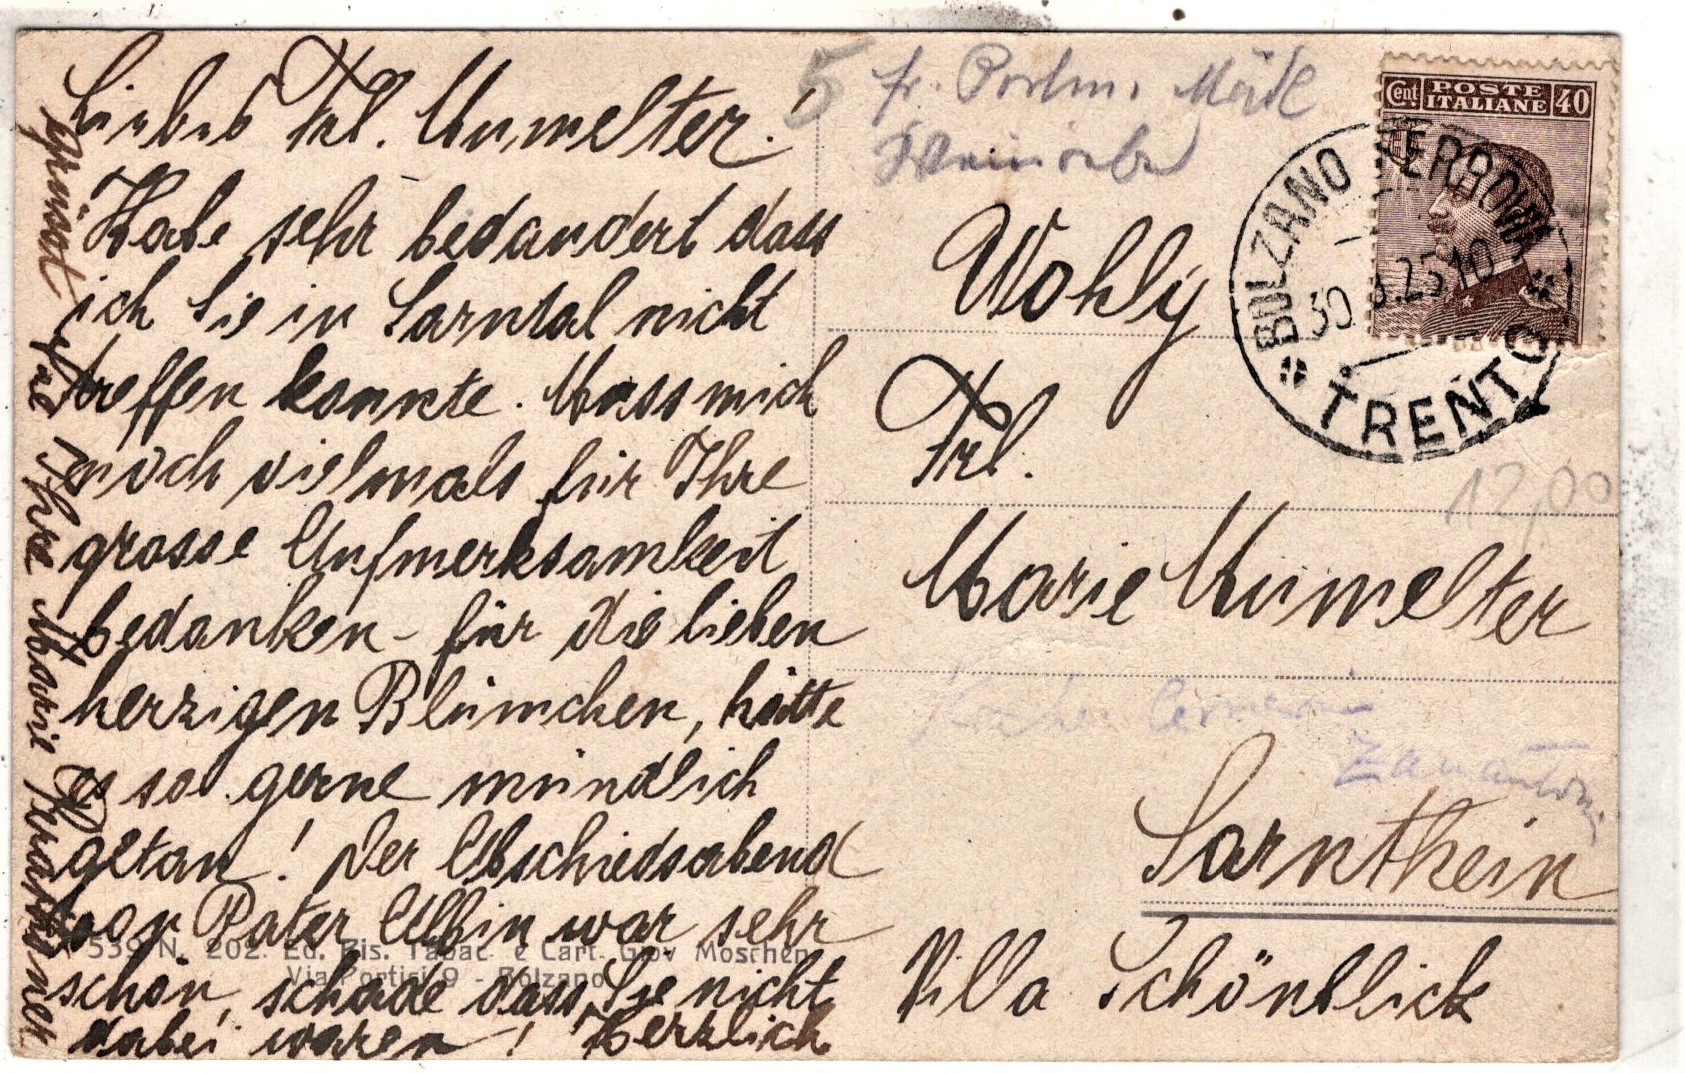 Liebes Frl. Mumelter!
Habe sehr bedauert dass
ich Sie in Sarntal nicht
treffen konnte. Muss mich
noch vielmals für Ihre
grosse Aufmerksamkeit
bedanken - für die lieben
herzigen Blümchen, hätte
es so gerne mündlich
getan! Der Abschiedsabend
von Pater Albin war sehr
schön, schade dass Sie nicht
dabei waren! Herzlich
grüsst Sie Ihre Marie
539 N. 202. Ed. Ris. Tabac. e Cart. Giov Moschen
Via Portici 9 - Bolzano
5
POSTE
ITALIANE
Cent 40
BOLZANO FERROVIA
30. 25 10
TRENTO
Wohlg
Frl.
12,00
Marie Mumelter
Sarnthein
Villa Schönblick